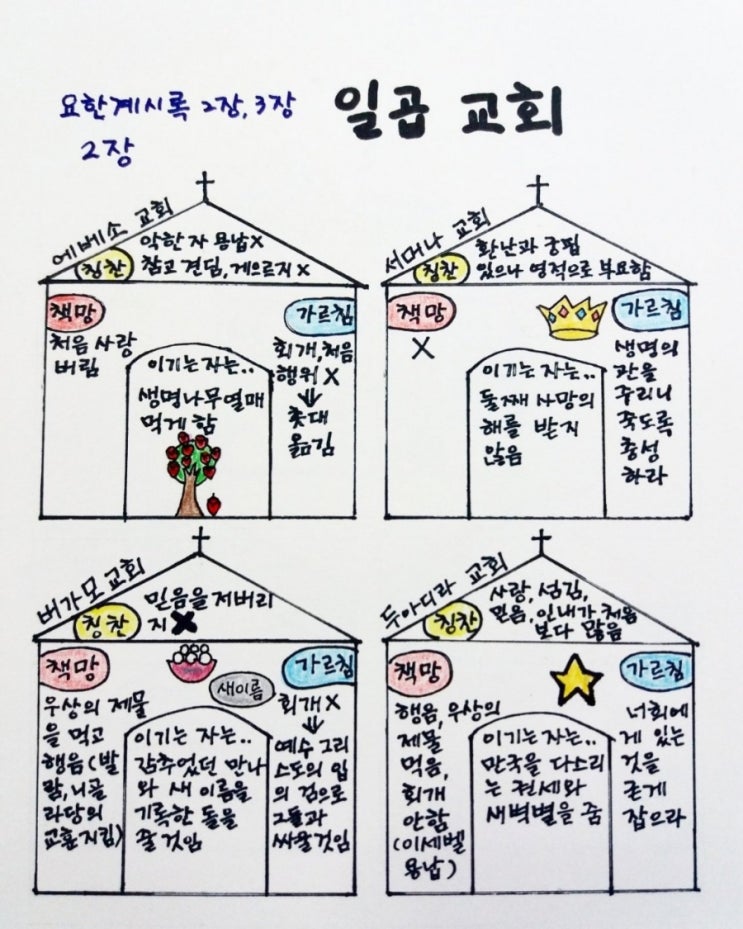 요한계시록 2장, 3장
일곱 교회
2장
에베소 교회
칭찬
악한자 용납X
참고 견딤, 게으르지 X
책망
처음 사랑
버림
이기는 자는..
생명나무 열매
먹게 함
가르침
회개, 처음
행위 X
⇓
촛대
옮김
서머나 교회
칭찬
환난과 궁핍
있으나 영적으로 부요함
책망
X
이기는 자는..
둘째 사망의
해를 받지
않음
가르침
생명의
관을
주리니
죽도록
충성
하라
버가모 교회
칭찬
믿음을 저버리
지 X
책망
우상의 제물
을 먹고
행음(발
람, 니골
라당의
교훈지킴)
새이름
이기는 자는..
감추었던 만나
와 새 이름을
기록한 돌을
줄것임
가르침
회개 X
⇓
예수 그리
스도의 입
의 검으로
그들과
싸울것임
두아디라 교회
칭찬
사랑, 섬김,
믿음, 인내가 처음
보다 많음
책망
행음, 우상의
제물
먹음,
회개
안함
(이세벨
용납)
이기는 자는..
만국을 다스리
는 권세와
새벽별을 줌
가르침
너희에
게 있는
것을
굳게
잡으라